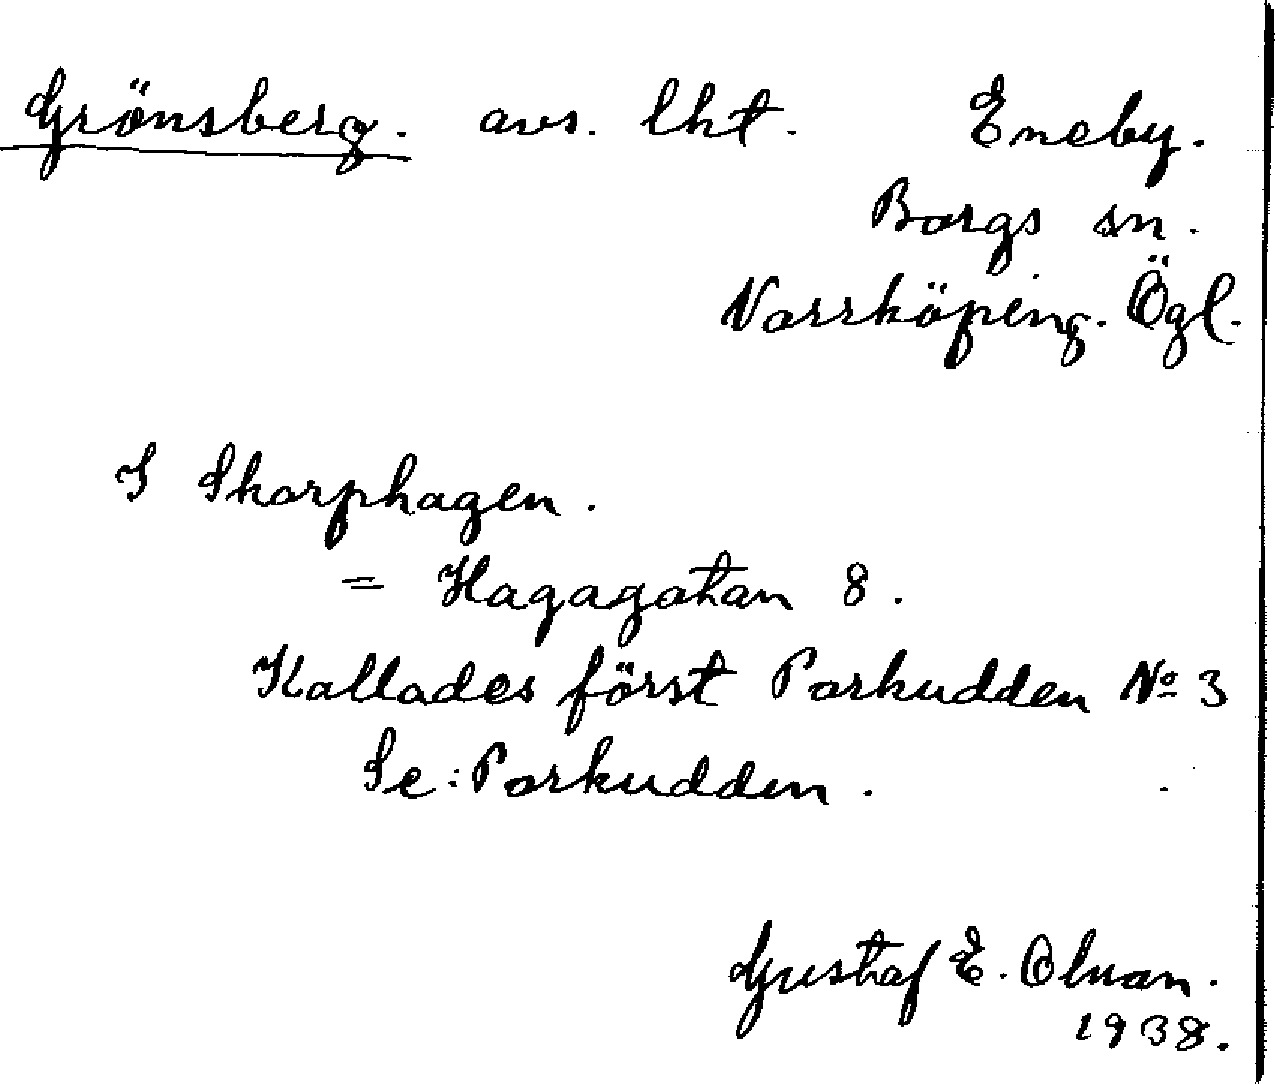 Grönsberg. avs. lht. Eneby.
Borgs sn.
Norrköping. Ögl.
I Skarphagen.
= Hagagatan 8.
Kallades först Parkudden No 3
Se: Parkudden.
Gustaf E. Olsson.
1938.